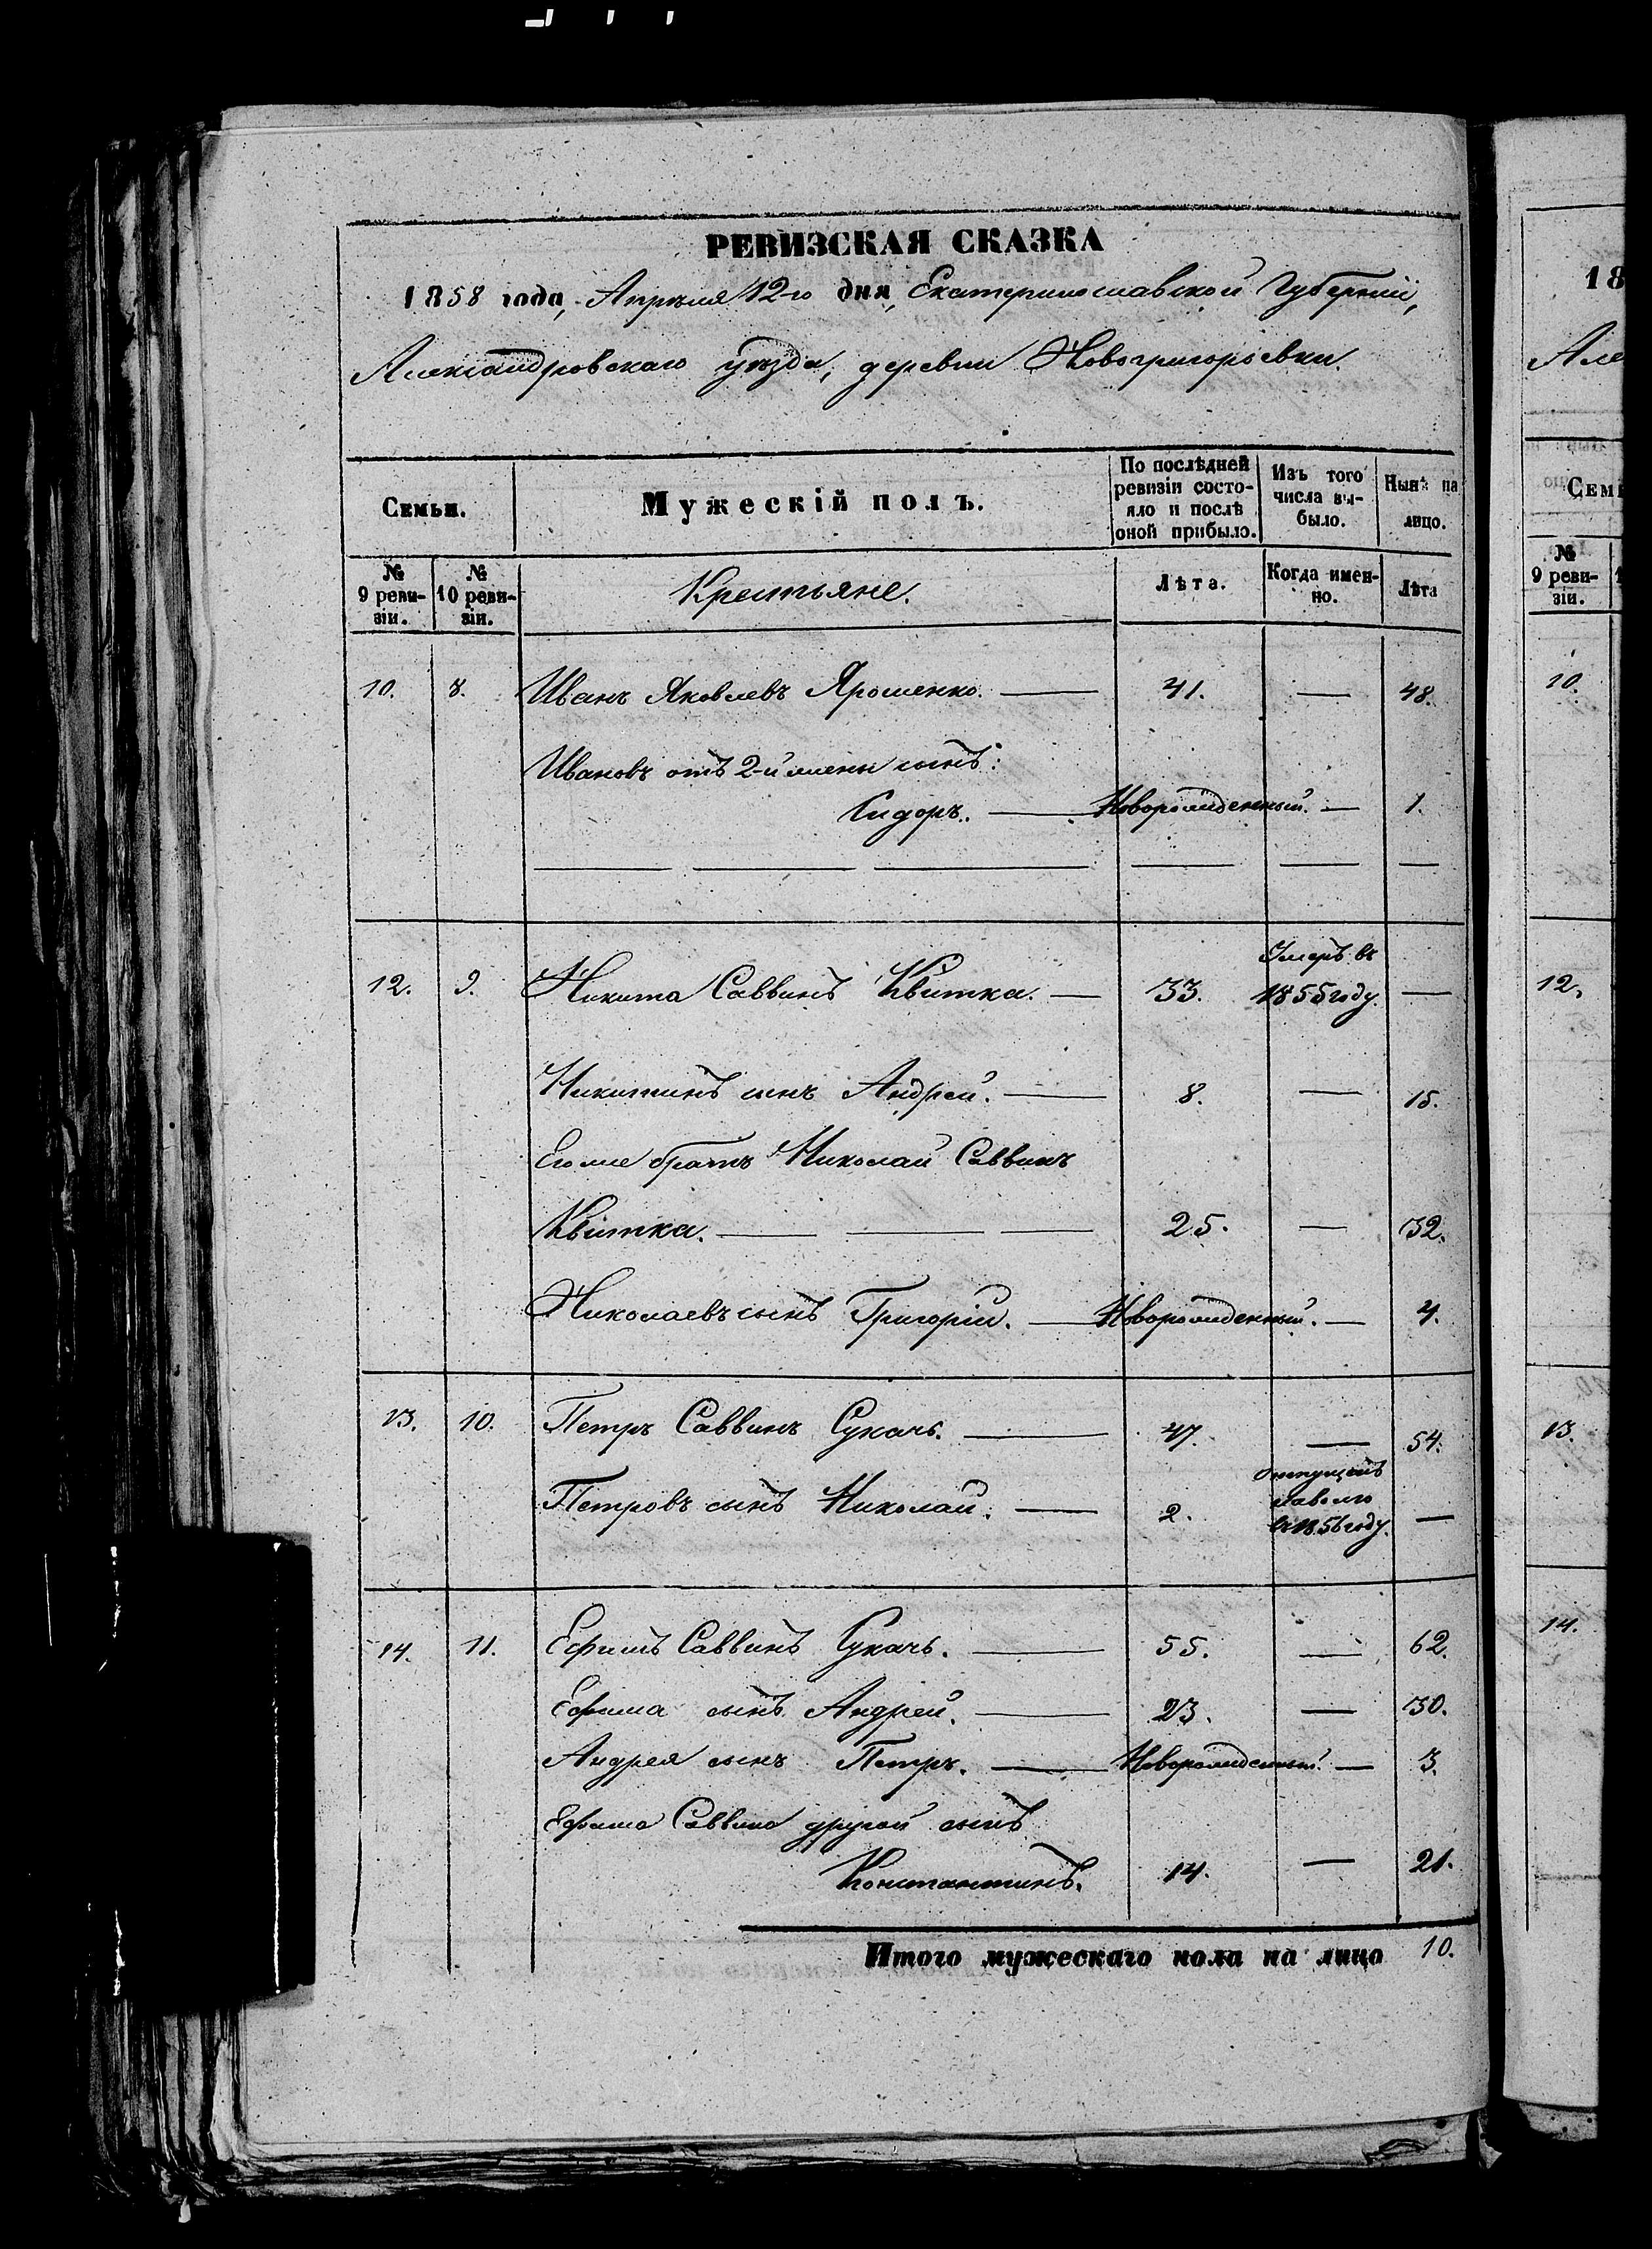 РЕВИЗСКАЯ СКАЗКА
1858 года, Апрѣля 12-го дня, Екатеринославской Губерніи,
Александровскаго уѣзда, деревни Новогригорьевки.
Семьи.
Мужескій полъ.
По послѣдней ревизіи состояло и послѣ оной прибыло.
Изъ того числа выбыло.
Нынѣ на лицо.
№ 9 ревизіи.
№ 10 ревизіи.
Крестьяне.
Лѣта.
Когда именно.
Лѣта
10. 8. Иванъ Яковлевъ Ярошенко. — 41. — 48.
Ивановъ отъ 2-й жены сынъ:
Сидоръ. — Новорожденный. — 1.
12. 9. Никита Саввинъ Квитка. — 33. Умеръ въ 1855 году. —
Никитинъ сынъ Андрей. — 8. — 15.
Его же братъ Николай Саввинъ
Квитка. — 25. — 32.
Николаевъ сынъ Григорій. — Новорожденный. — 4.
13. 10. Петръ Саввинъ Сукачь. — 47. — 54.
Петровъ сынъ Николай. — 2. Отпущенъ на волю въ 1856 году. —
14. 11. Ефимъ Саввинъ Сукачь. — 55. — 62.
Ефима сынъ Андрей. — 23. — 30.
Андрея сынъ Петръ. — Новорожденный. — 3.
Ефима Саввина другой сынъ
Константинъ. 14. — 21.
Итого мужескаго пола на лицо 10.
18
Але
Семь
№ 9 ревизіи.
10.
12.
13.
14.